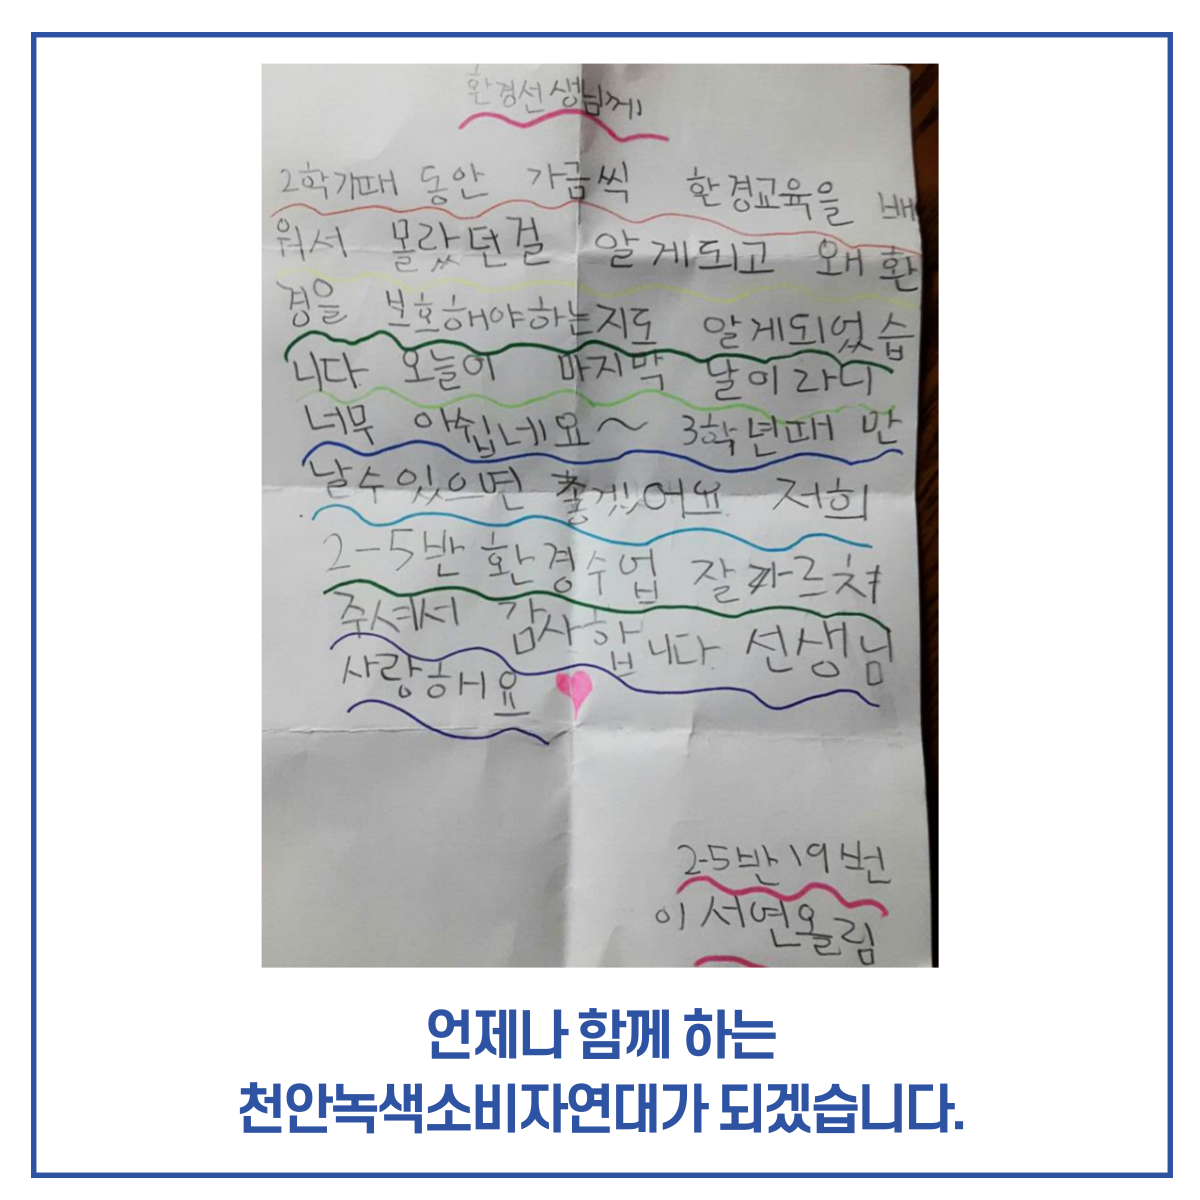 환경선생님께
2학기때 동안 가끔씩 환경교육을 배
워서 몰랐던걸 알게되고 왜 환
경을 보호해야하는지도 알게되었습
니다. 오늘이 마지막 날이라니
너무 아쉽네요~ 3학년때 만
날수있으면 좋겠어요. 저희
2-5반 환경수업 잘 가르쳐
주셔서 감사합니다. 선생님
사랑해요
2-5반 19번
이서연올림
언제나 함께 하는
천안녹색소비자연대가 되겠습니다.